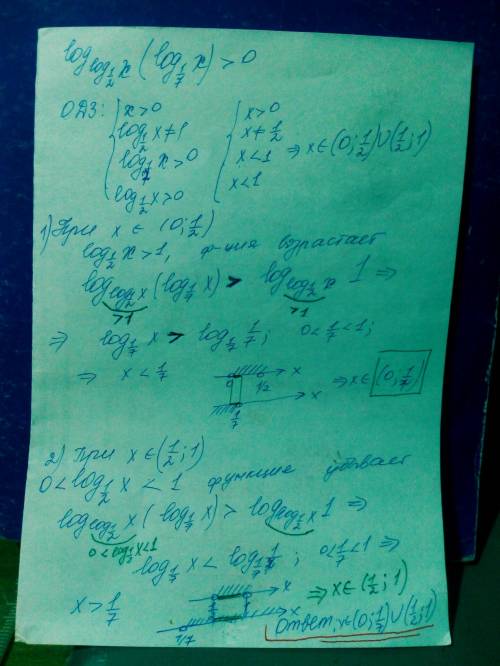 log_{log_{1/2} x} (log_{1/7} x) > 0
ОДЗ: { x>0 { x>0
log_{1/2} x ≠ 1 x ≠ 1/2 ⇒ x ∈ (0; 1/2) ∪ (1/2; 1)
log_{1/7} x > 0 x < 1
log_{1/2} x > 0 x < 1
1) При x ∈ (0; 1/2)
log_{1/2} x > 1, ф-ция возрастает
log_{log_{1/2} x} (log_{1/7} x) > log_{log_{1/2} x} 1 ⇒
>1 >1
⇒ log_{1/7} x > log_{1/7} 1/7; 0 < 1/7 < 1;
⇒ x < 1/7 0 1/2 x ⇒ x ∈ (0; 1/7)
1/7 x
2) При x ∈ (1/2; 1)
0 < log_{1/2} x < 1 функция убывает
log_{log_{1/2} x} (log_{1/7} x) > log_{log_{1/2} x} 1 ⇒
0 < log_{1/2} x < 1
log_{1/7} x < log_{1/7} 1/7; 0 < 1/7 < 1 ⇒
x > 1/7 x ⇒ x ∈ (1/2; 1)
1/7 x
Ответ: x ∈ (0; 1/7) ∪ (1/2; 1)